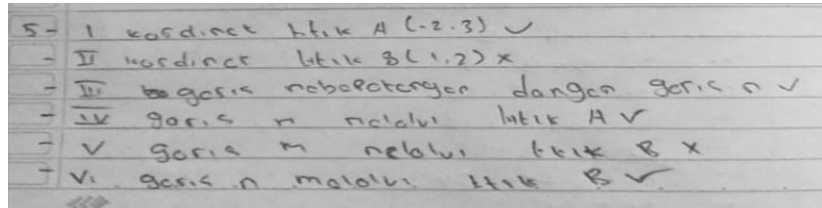 5- I kordinat titik A (-2.3) ✓
- II kordinat titik B (1.2) x
- III garis berpotongan dangan garis n ✓
- IV garis n melalui titik A ✓
- V garis m melalui titik B x
- VI garis n malalui titik B ✓